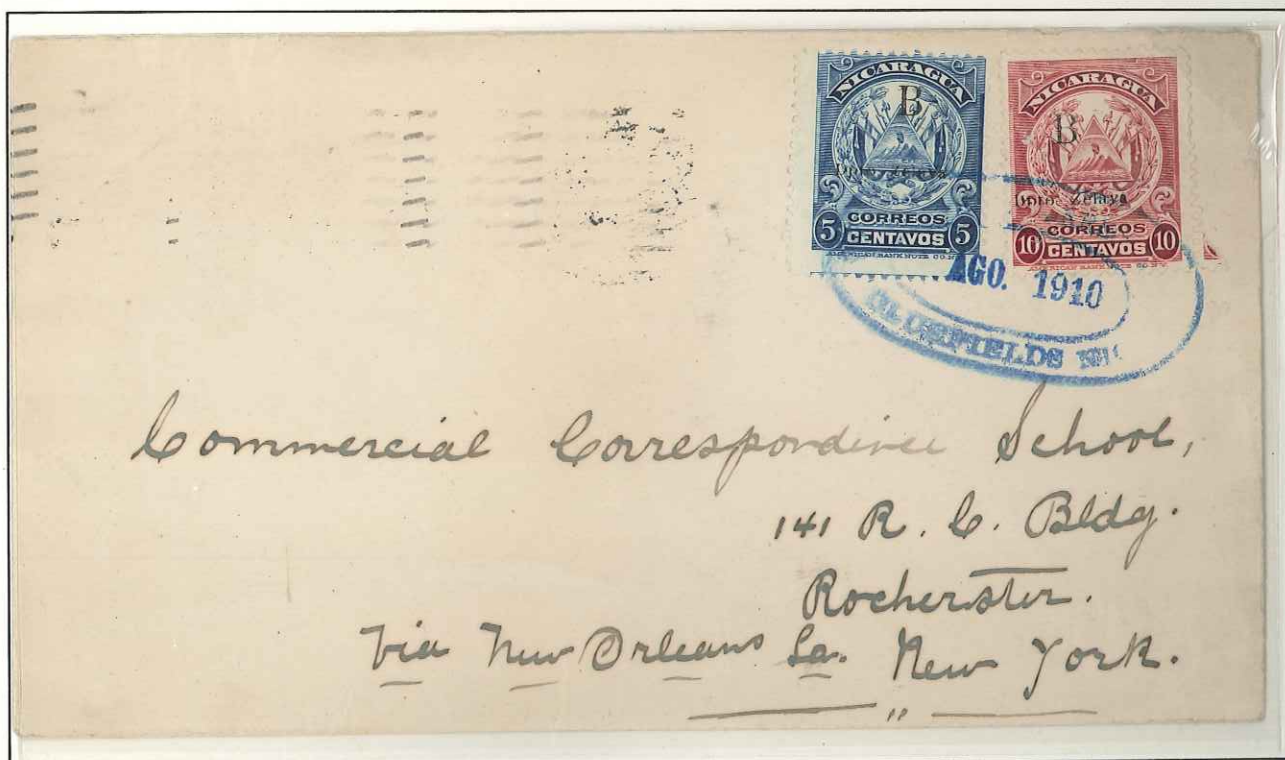 NICARAGUA
B
Dpto. Zelaya
CORREOS
5 CENTAVOS 5
AMERICAN BANK NOTE CO. N.Y.
NICARAGUA
B
Dpto. Zelaya
CORREOS
10 CENTAVOS 10
AMERICAN BANK NOTE CO. N.Y.
AGO. 1910
BLUEFIELDS NIC
Commercial Correspondince School,
141 R. C. Bldg.
Rocherster.
Via New Orleans La. New York.
"